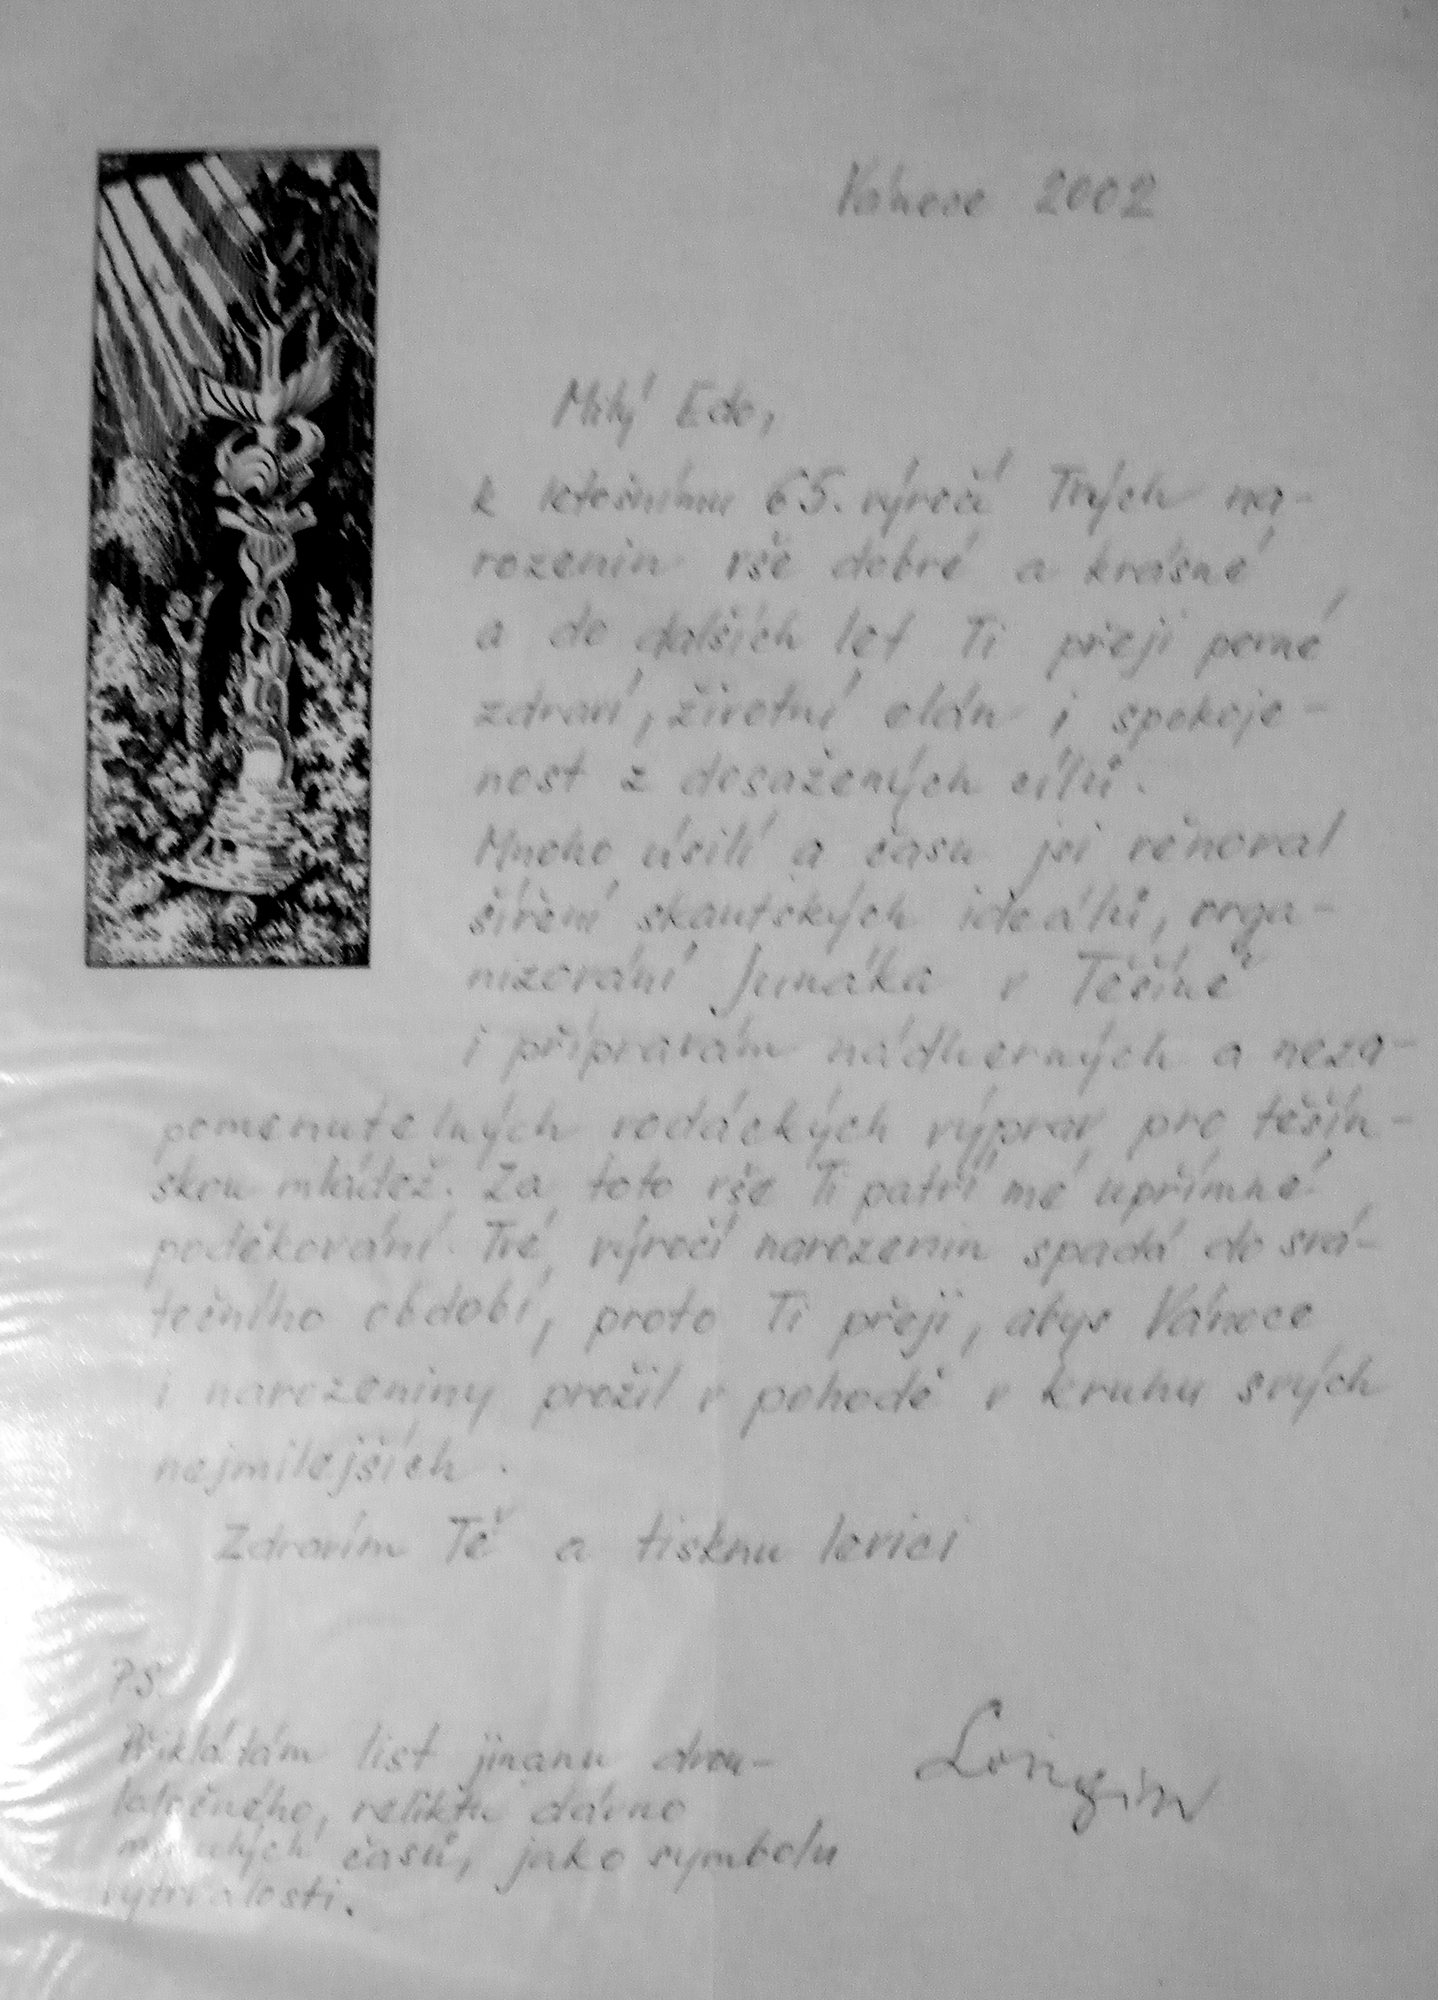 Vánoce 2002
Milý Edo,
k letošnímu 65. výročí Tvých na-
rozenin vše dobré a krásné
a do dalších let Ti přeji pevné
zdraví, životní elán i spokoje-
nost z dosažených cílů.
Mnoho úsilí a času jsi věnoval
šíření skautských ideálů, orga-
nizování Junáka v Těšíně
i přípravám nádherných a neza-
pomenutelných vodáckých výprav pro těšín-
skou mládež. Za toto vše Ti patří mé upřímné
poděkování. Tvé výročí narozenin spadá do svá-
tečního období, proto Ti přeji, abys Vánoce
i narozeniny prožil v pohodě v kruhu svých
nejmilejších.
Zdravím Tě a tisknu levici
PS.
Přikládám list jinanu dvou-
laločného, reliktu dávno
minulých časů, jako symbolu
vytrvalosti.
Longin